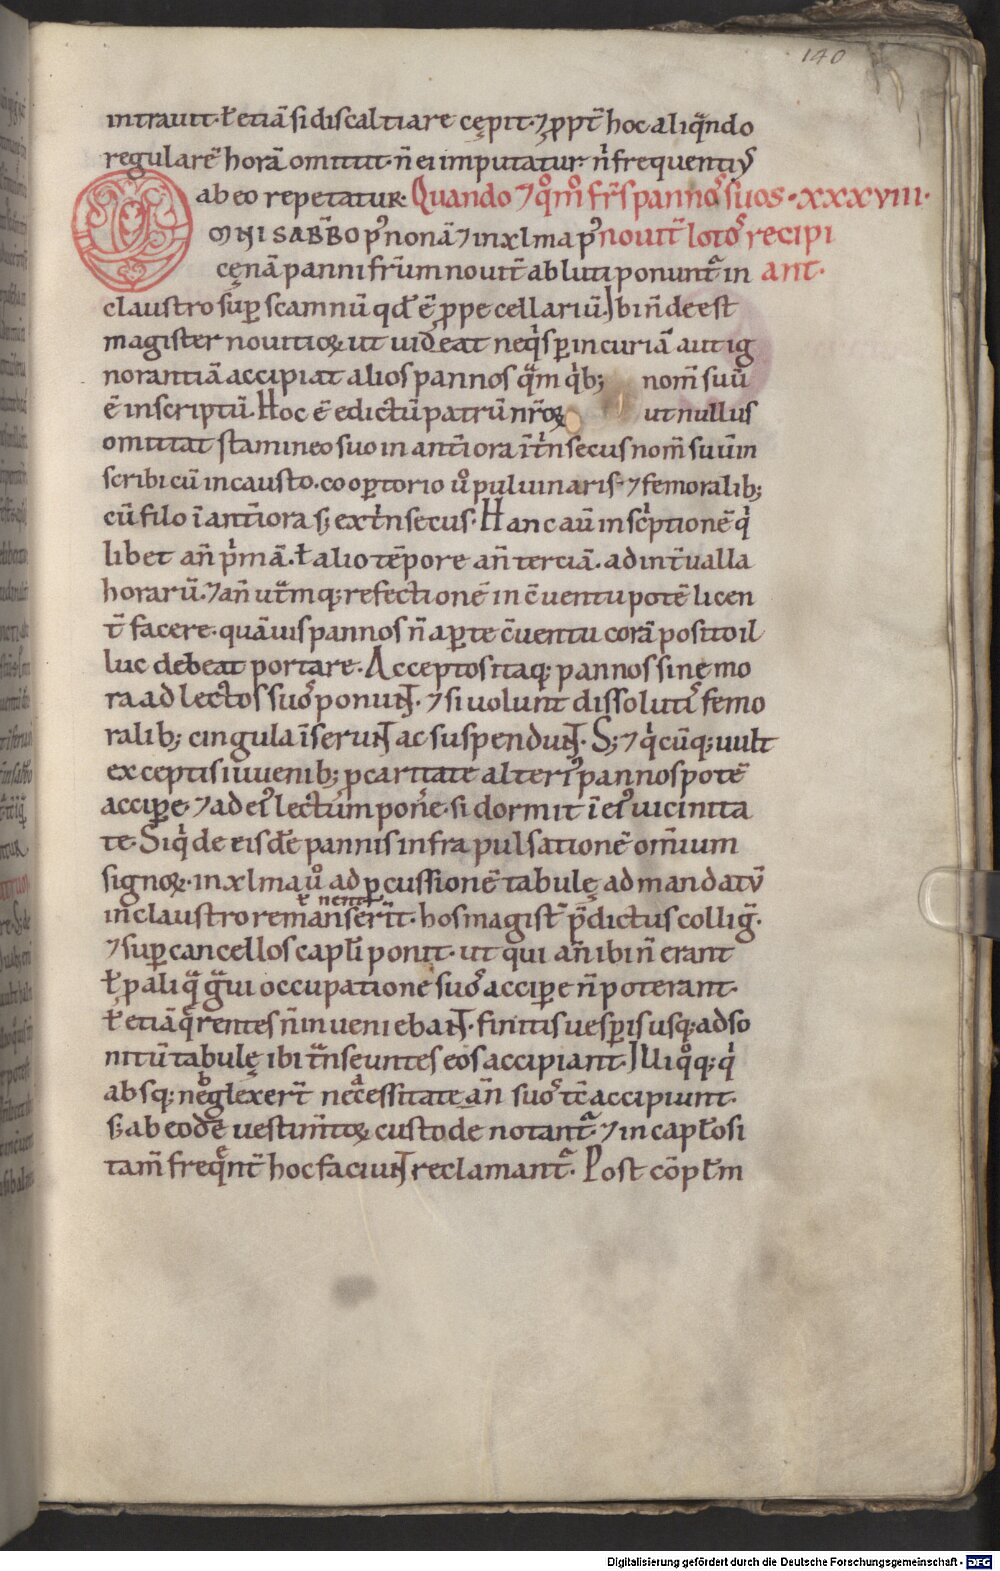 140
intrauit· ł etiā si discaltiare cępit· ⁊ ꝓpt̄ hoc aliqͣndo
regularē horā omittit· n̄ ei imputatur n̄ frequentiꝰ
ab eo repetatur· Quando ⁊ qͦmͦ fr̄s pannoˢ suos· xxxviii·
OMNI SABB̄O pꝰ nonā ⁊ in xlma pꝰ nouit̄ lotoˢ recipi
cęnā panni fr̄um nouit̄ abluti ponunt̄ in ant·
claustro suꝑ scamnū qđ ē ꝓpe cellariū Ibi n̄ de est
magister nouitioꝝ ut uideat ne qͥs ꝑ incuriā aut ig
norantiā accipiat alios pannos qͣm qͥbꝫ nom̄ suū
ē inscriptū. Hoc ē edictū patrū nr̄oꝝ ut nullus
omittat stamineo suo in anteriora īt̄nsecus nom̄ suum in
scribi cū incausto· coopertorio uͦ puluinaris· ⁊ femoralibꝫ
cū filo ī antiora sꝫ ext̄nsecus· Hanc aū inscͥptionē qͥ
libet an̄ pͥmā· ł alio tēpore an̄ terciā· ad int̄ualla
horarū· ⁊ an̄ utͣmqꝫ refectionē in c̄uentu potē licen
t̄ facere· quāuis pannos n̄ aꝑte c̄uentu corā posito il
luc debeat portare· Acceptos itaqꝫ pannos sinę mo
ra ad lectos suoˢ ponunt· ⁊ si uolunt dissolutiˢ femo
ralibꝫ cingula īserunt ac suspendunt· Sꝫ ⁊ qͥcūqꝫ uult
exceptis iuuenibꝫ ꝓ caritate alteriꝰ pannos potē
accipere ⁊ ad eiꝰ lectum pon̄e· si dormit ī eiꝰ uicinita
te· Siqͥ de eisdē pannis infra pulsationē om̄ium
signoꝝ· in xlma uͦ ad ꝑcussionē tabulę ad mandatū
ł nentur
in claustro remanserīt· hos magist̄ p̄dictus collig̃·
⁊ suꝑ cancellos capłi ponit· ut qui an̄ ibi n̄ erant
ł ꝑ aliqͣ gͣui occupatione suoˢ accipere n̄ poterant·
ł etiā qͣrentes n̄ inueniebant· finitis uesperis usqꝫ ad so
nitū tabulę ibi tͣnseuntes eos accipiant· Illi qͦqꝫ qͥ
absqꝫ neglexert̄ necessitate an̄ suoˢ tc̄ accipiunt·
sꝫ ab eodē uestim̄toꝝ custode notant̄· ⁊ in capłosi
tam̄ freqͤnt̄ hoc faciunt reclamant̄· Post cōpłm
Digitalisierung gefördert durch die Deutsche Forschungsgemeinschaft - DFG